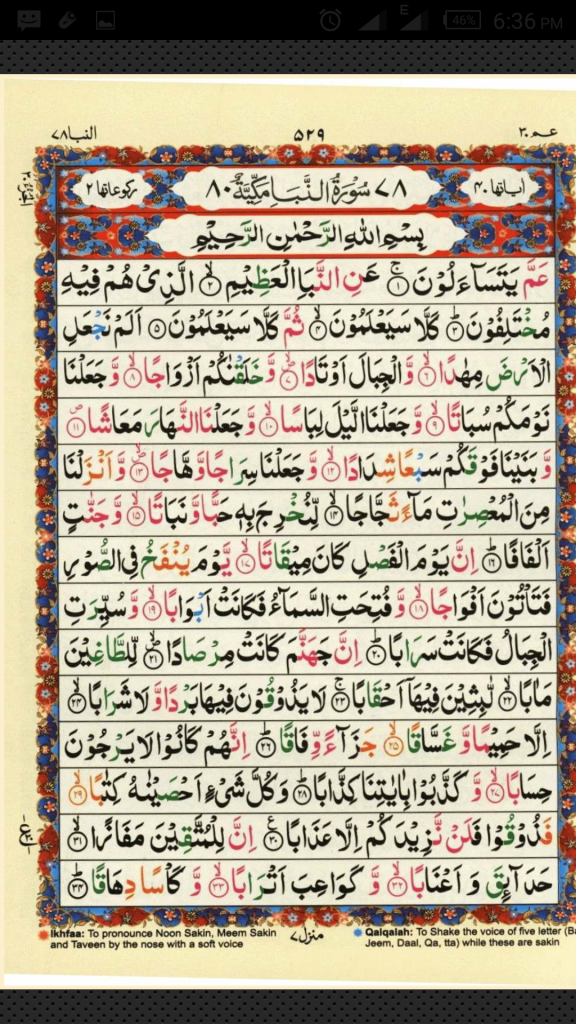 E 46% 6:36 PM
النبا ٧٨ ٥٢٩ عـمـ ٣٠
اٰیاتها ٤٠ ٧٨ سُوْرَةُ النَّبَاِ مَكِّيَّةٌ ٨٠ رکوعاتها ٢
بِسْمِ اللهِ الرَّحْمٰنِ الرَّحِيْمِ
عَمَّ يَتَسَآءَلُوْنَ ۚ﴿١﴾ عَنِ النَّبَاِ الْعَظِيْمِ ۙ﴿٢﴾ الَّذِىْ هُمْ فِيْهِ
مُخْتَلِفُوْنَ ؕ﴿٣﴾ كَلَّا سَيَعْلَمُوْنَ ۙ﴿٤﴾ ثُمَّ كَلَّا سَيَعْلَمُوْنَ ﴿٥﴾ اَلَمْ نَجْعَلِ
الْاَرْضَ مِهٰدًا ۙ﴿٦﴾ وَّالْجِبَالَ اَوْتَادًا ۪ۙ﴿٧﴾ وَّخَلَقْنٰكُمْ اَزْوَاجًا ۙ﴿٨﴾ وَّجَعَلْنَا
نَوْمَكُمْ سُبَاتًا ۙ﴿٩﴾ وَّجَعَلْنَا الَّيْلَ لِبَاسًا ۙ﴿١٠﴾ وَّجَعَلْنَا النَّهَارَ مَعَاشًا ۪﴿١١﴾
وَّبَنَيْنَا فَوْقَكُمْ سَبْعًا شِدَادًا ۙ﴿١٢﴾ وَّجَعَلْنَا سِرَاجًا وَّهَّاجًا ۪ۙ﴿١٣﴾ وَّاَنْزَلْنَا
مِنَ الْمُعْصِرٰتِ مَآءً ثَجَّاجًا ۙ﴿١٤﴾ لِّنُخْرِجَ بِهٖ حَبًّا وَّنَبَاتًا ۙ﴿١٥﴾ وَّجَنّٰتٍ
اَلْفَافًا ؕ﴿١٦﴾ اِنَّ يَوْمَ الْفَصْلِ كَانَ مِيْقَاتًا ۙ﴿١٧﴾ يَّوْمَ يُنْفَخُ فِى الصُّوْرِ
فَتَاْتُوْنَ اَفْوَاجًا ۙ﴿١٨﴾ وَّفُتِحَتِ السَّمَآءُ فَكَانَتْ اَبْوَابًا ۙ﴿١٩﴾ وَّسُيِّرَتِ
الْجِبَالُ فَكَانَتْ سَرَابًا ؕ﴿٢٠﴾ اِنَّ جَهَنَّمَ كَانَتْ مِرْصَادًا ۪ۙ﴿٢١﴾ لِّلطَّاغِيْنَ
مَاٰبًا ۙ﴿٢٢﴾ لّٰبِثِيْنَ فِيْهَاۤ اَحْقَابًا ۚ﴿٢٣﴾ لَا يَذُوْقُوْنَ فِيْهَا بَرْدًا وَّلَا شَرَابًا ۙ﴿٢٤﴾
اِلَّا حَمِيْمًا وَّغَسَّاقًا ۙ﴿٢٥﴾ جَزَآءً وِّفَاقًا ؕ﴿٢٦﴾ اِنَّهُمْ كَانُوْا لَا يَرْجُوْنَ
حِسَابًا ۙ﴿٢٧﴾ وَّكَذَّبُوْا بِاٰيٰتِنَا كِذَّابًا ؕ﴿٢٨﴾ وَكُلَّ شَىْءٍ اَحْصَيْنٰهُ كِتٰبًا ۙ﴿٢٩﴾
فَذُوْقُوْا فَلَنْ نَّزِيْدَكُمْ اِلَّا عَذَابًا ﴿٣٠﴾ اِنَّ لِلْمُتَّقِيْنَ مَفَازًا ۙ﴿٣١﴾
حَدَآئِقَ وَاَعْنَابًا ۙ﴿٣٢﴾ وَّكَوَاعِبَ اَتْرَابًا ۙ﴿٣٣﴾ وَّكَاْسًا دِهَاقًا ؕ﴿٣٤﴾
منزل ٧
Ikhfaa: To pronounce Noon Sakin, Meem Sakin
and Taveen by the nose with a soft voice
Qalqalah: To Shake the voice of five letter (Ba
Jeem, Daal, Qa, tta) while these are sakin